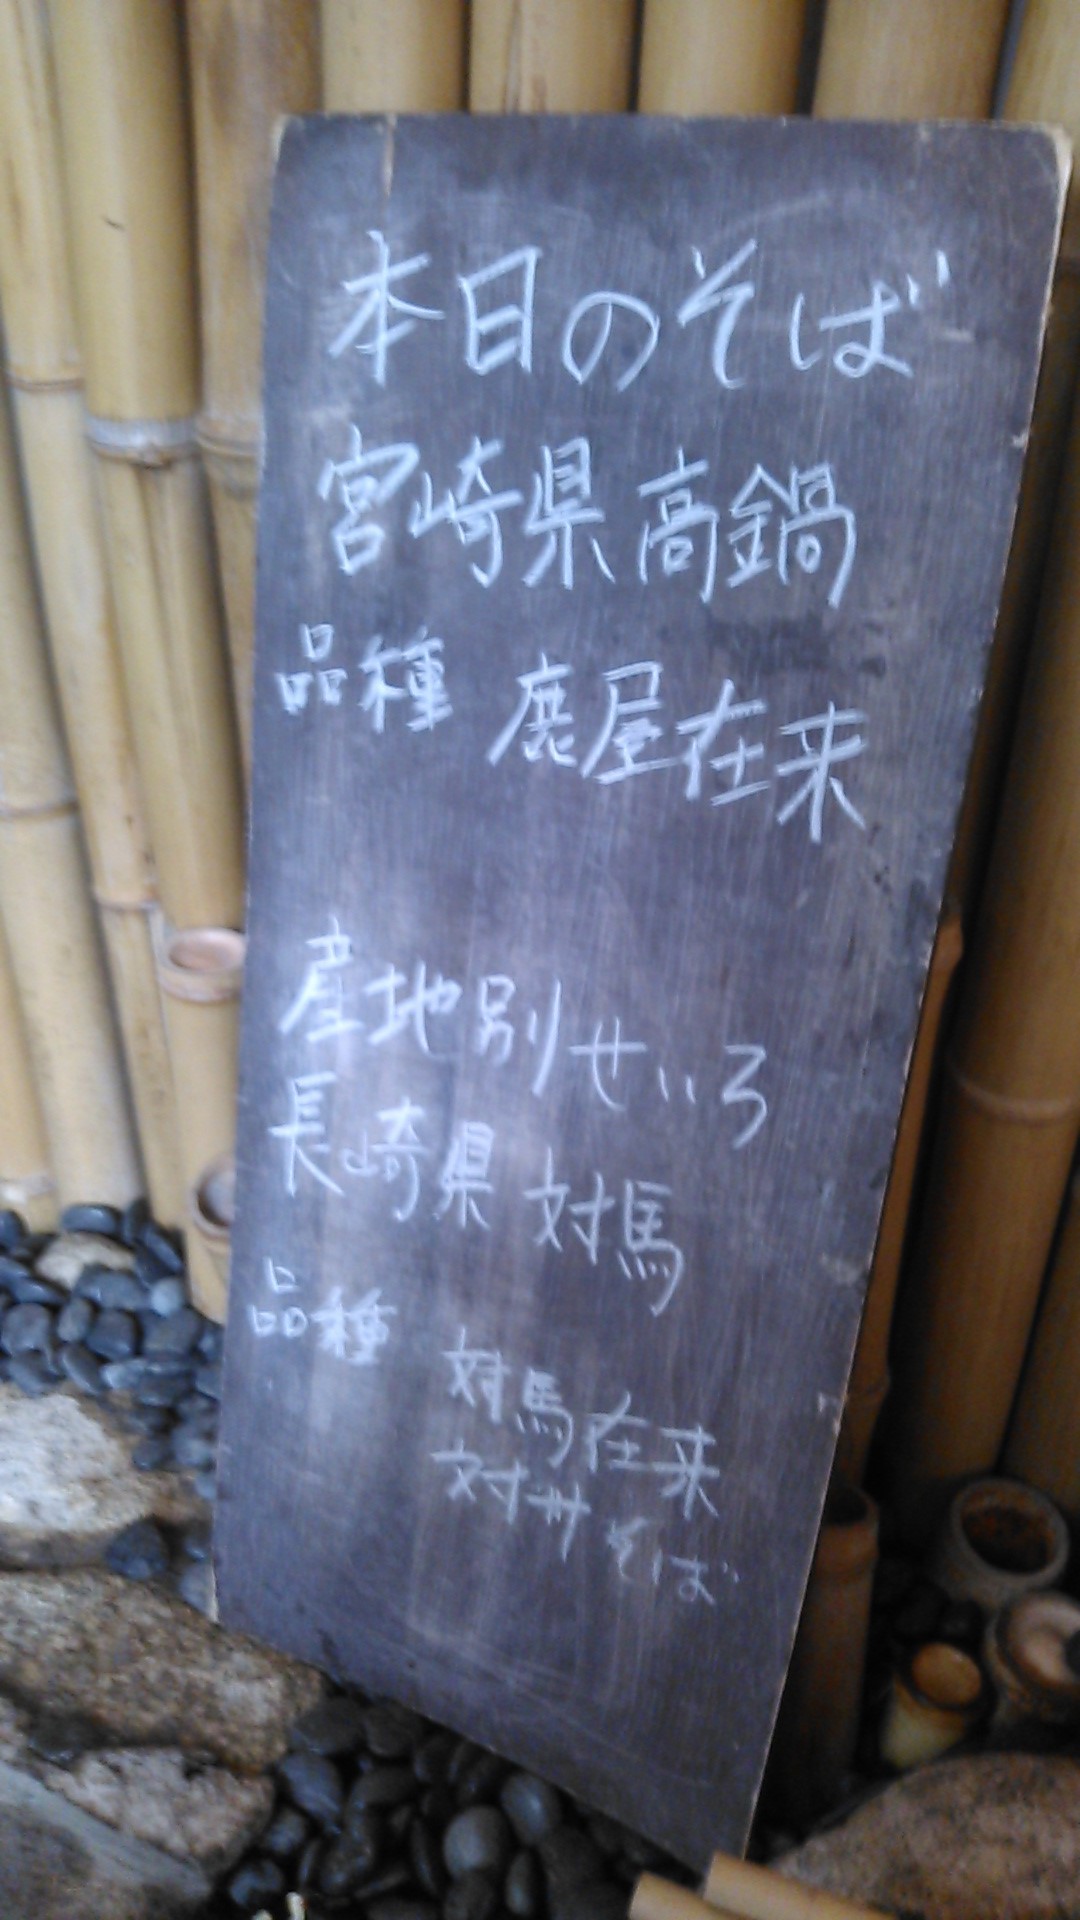 本日のそば
宮崎県高鍋
品種 鹿屋在来
産地別せいろ
長崎県 対馬
品種 対馬在来
対州そば